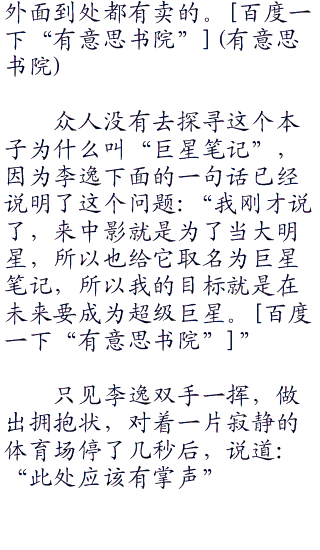 外面到处都有卖的。[百度一
下“有意思书院”](有意思
书院)
众人没有去探寻这个本
子为什么叫“巨星笔记”，
因为李逸下面的一句话已经
说明了这个问题：“我刚才说
了，来中影就是为了当大明
星，所以也给它取名为巨星
笔记，所以我的目标就是在
未来要成为超级巨星。[百度
一下“有意思书院”]”
只见李逸双手一挥，做
出拥抱状，对着一片寂静的
体育场停了几秒后，说道：
“此处应该有掌声”